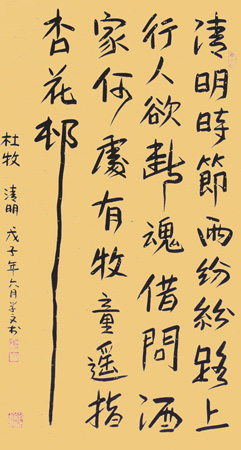 清明時節雨紛紛路上
行人欲斷魂借問酒
家何處有牧童遥指
杏花邨
杜牧 清明 戊子年六月